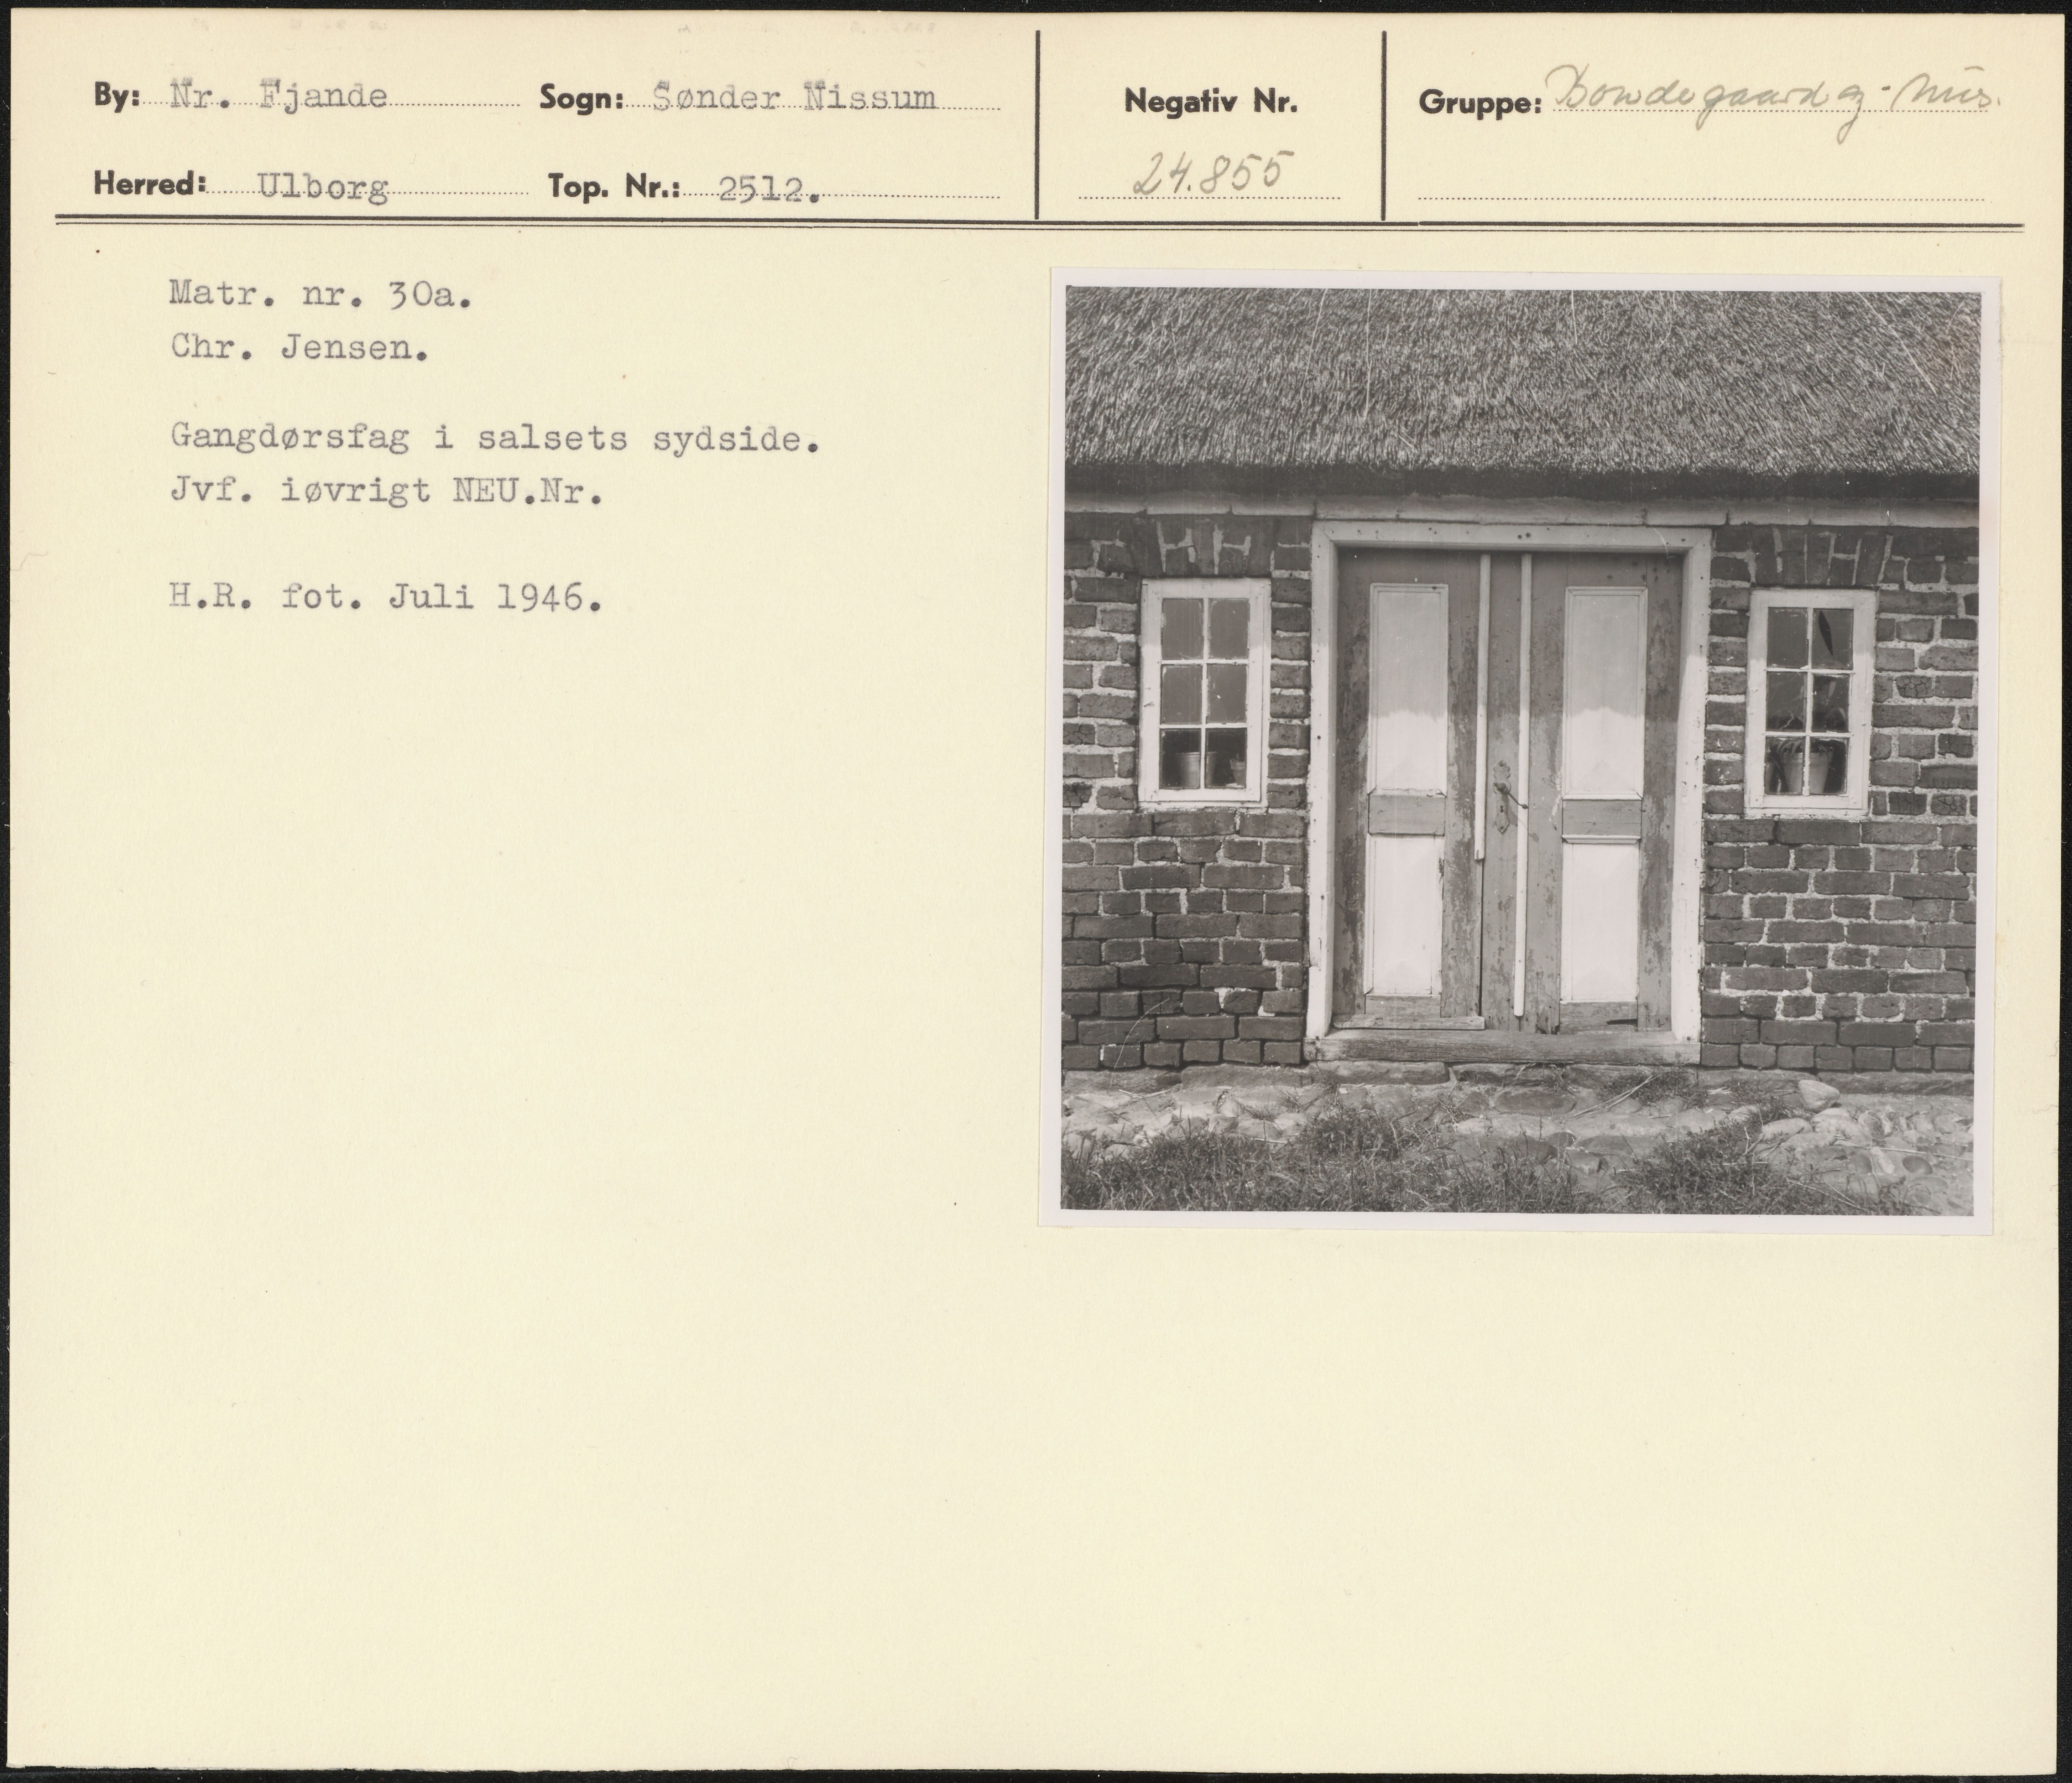 By: Nr. Fjande Sogn: Sønder Nissum
Herred: Ulborg Top. Nr.: 2512.
Negativ Nr.
24.855
Gruppe: Bondegaard og -hus.
Matr. nr. 30a.
Chr. Jensen.
Gangdørsfag i salsets sydside.
Jvf. iøvrigt NEU.Nr.
H.R. fot. Juli 1946.